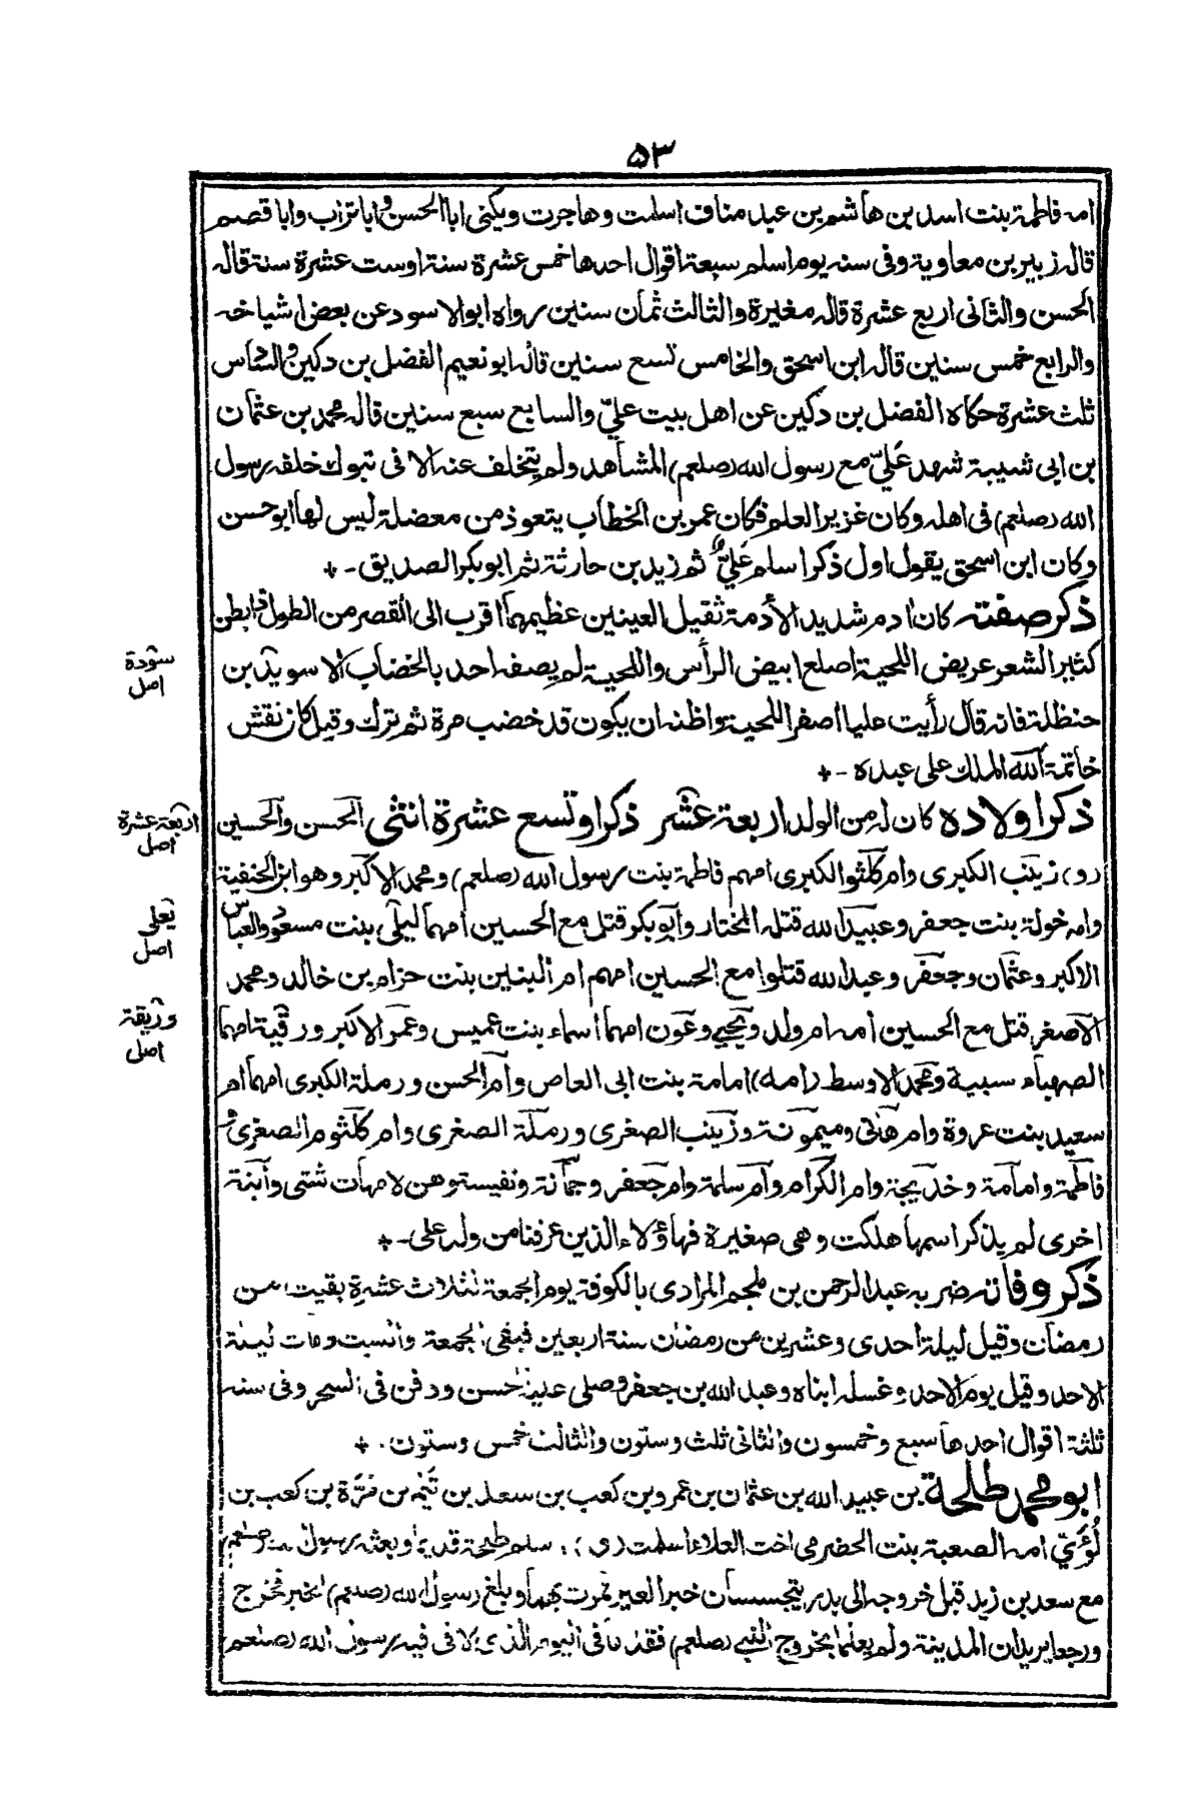 ۵۳
امه فاطمة بنت اسد بن هاشم بن عبد مناف اسلمت وهاجرت ويكنى ابا الحسن و ابا تراب وابا قصم
قاله زبير بن معاوية وفى سنه يوم اسلم سبعة اقوال احدها خمس عشرة سنة اوست عشرة سنة قاله
الحسن والثانى اربع عشرة قاله مغيرة والثالث ثمان سنين رواه ابوالاسود عن بعض اشياخه
والرابع خمس سنين قاله ابن اسحق والخامس تسع سنين قاله ابو نعيم الفضل بن دكين والسادس
ثلث عشرة حكاه الفضل بن دكين عن اهل بيت علىّ والسابع سبع سنين قاله محمد بن عثمان
بن ابى شيبة شهد علىّ مع رسول الله (صلعم) المشاهد ولم يتخلف عنه الا فى تبوك خلفه رسول
الله (صلعم) فى اهله وكان غزير العلم فكان عمر بن الخطاب يتعوذ من معضلة ليس لها ابو حسن
وكان ابن اسحق يقول اول ذكر اسلم علىّ ثم زيد بن حارثة ثم ابو بكر الصديق ۔
ذكر صفته كان ادم شديد الأدمة ثقيل العينين عظيمهما اقرب الى القصر من الطول ذا بطن
كثير الشعر عريض اللحية اصلع ابيض الرأس واللحية لم يصفه احد بالخضاب الا سويد بن
سودة
اصل
حنظلة فانه قال رأيت عليا اصفر اللحية واظنه ان يكون قد خضب مرة ثم ترك وقيل كان نقش
خاتمة الله الملك على عبده ۔
ذكر اولاده كان له من الولد اربعة عشر ذكرا وتسع عشرة انثى الحسن والحسين
اربعة عشرة
اصل
(و) زينب الكبرى وام كلثوم الكبرى امهم فاطمة بنت رسول الله (صلعم) ومحمد الاكبر وهو ابن الحنفية
وامه خولة بنت جعفر وعبيد الله قتله المختار وابو بكر قتل مع الحسين امهما ليلى بنت مسعود والعباس
يعلى
اصل
الاكبر وعثمان وجعفر وعبد الله قتلوا مع الحسين امهم ام البنين بنت حزام بن خالد ومحمد
الاصغر قتل مع الحسين امه ام ولد ويحيى وعون امهما أسماء بنت عميس وعمر الاكبر ورقية امهما
وريقة
اصلى
الصهباء سبية ومحمد الاوسط (امه) امامة بنت ابى العاص وام الحسن ورملة الكبرى امهما ام
سعيد بنت عروة وام هانى وميمونة وزينب الصغرى ورملة الصغرى وام كلثوم الصغرى و
فاطمة وامامة وخديجة وام الكرام وام سلمة وام جعفر وجمانة ونفيسة وهن لامهات شتى وابنة
اخرى لم يذكر اسمها هلكت وهى صغيرة فهاؤلاء الذين عرفنا من ولد على ۔
ذكر وفاته ضربه عبد الرحمن بن ملجم المرادى بالكوفة يوم الجمعة لثلاث عشرة بقيت من
رمضان وقيل ليلة احدى وعشرين من رمضان سنة اربعين فبقى الجمعة والسبت ومات ليلة
الاحد وقيل يوم الاحد وغسله ابناه وعبد الله بن جعفر وصلى عليه الحسن ودفن فى السحر وفى سنه
ثلثة اقوال احدها سبع وخمسون والثانى ثلث وستون والثالث خمس وستون ۔
ابو محمد طلحة بن عبيد الله بن عثمان بن عمرو بن كعب بن سعد بن تيم بن مرة بن كعب بن
لُؤَىّ امه الصعبة بنت الحضرمى اخت العلاء اسلمت (و) اسلم طلحة قديما وبعثه رسول الله صلعم
مع سعد بن زيد قبل خروجه الى بدر يتجسسان خبر العير فمرت بهما وبلغ رسول الله (صلعم) الخبر فخرج
ورجعا يريدان المدينة ولم يعلما بخروج النبى (صلعم) فقدما فى اليوم الذى لاقى فيه رسول الله (صلعم)